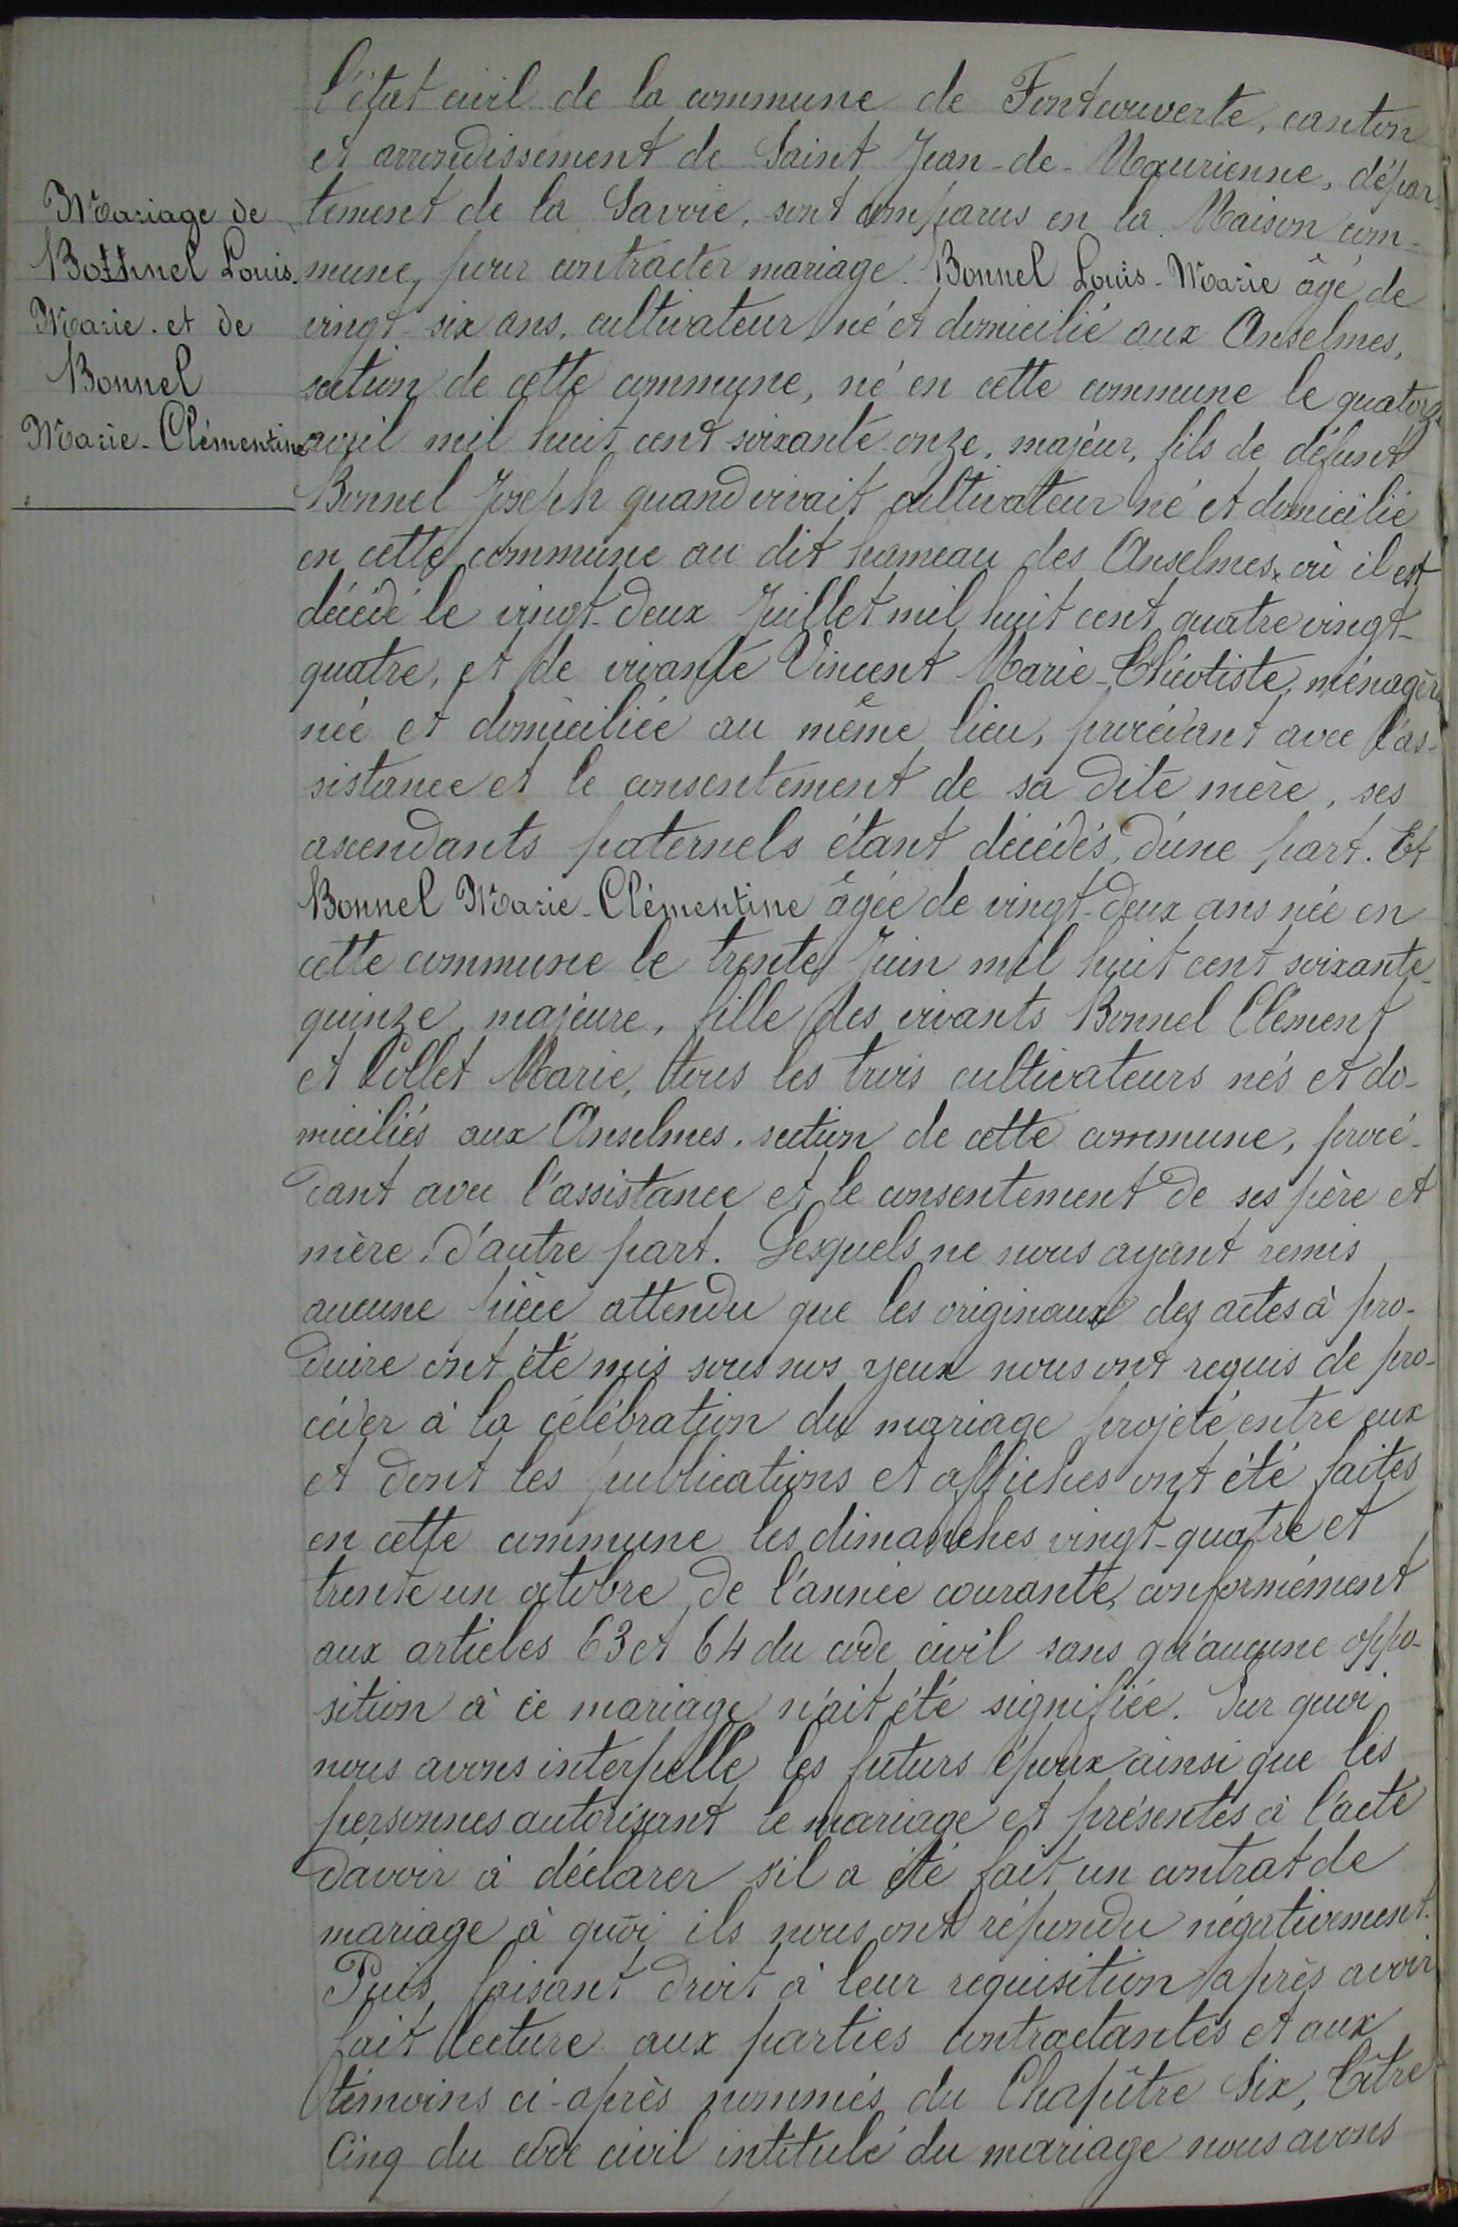 l'état civil de la commune de Fontcouverte, canton
et arrondissement de Saint Jean-de-Maurienne, dépar-
tement de la Savoie, sont comparus en la Maison com-
mune, pour contracter mariage. Bonnel Louis-Marie âgé de
vingt-six ans, cultivateur né et domicilié aux Anselmes,
section de cette commune, né en cette commune le quatorze
avril mil huit cent soixante-onze, majeur, fils de défunt
Bonnel Joseph quand vivait cultivateur né et domicilié
en cette commune au dit hameau des Anselmes, où il est
décédé le vingt-deux Juillet mil huit cent quatre vingt-
quatre, et de vivante Vincent Marie-Théotiste, ménagère
née et domiciliée au même lieu, procédant avec l'as-
sistance et le consentement de sa dite mère, ses
ascendants paternels étant décédés, d'une part. Et
Bonnel Marie-Clémentine âgée de vingt-deux ans née en
cette commune le trente Juin mil huit cent soixante-
quinze, majeure, fille des vivants Bonnel Clément
et Collet Marie, tous les trois cultivateurs nés et do-
miciliés aux Anselmes, section de cette commune, procé-
dant avec l'assistance et le consentement de ses père et
mère, d'autre part. Lesquels ne nous ayant remis
aucune pièce attendu que les originaux des actes à pro-
duire ont été mis sous nos yeux nous ont requis de pro-
céder à la célébration du mariage projeté entre eux
et dont les publications et affiches ont été faites
en cette commune les dimanches vingt-quatre et
trente un octobre de l'année courante, conformément
aux articles 63 et 64 du code civil sans qu'aucune oppo-
sition à ce mariage n'ait été signifiée. Sur quoi
nous avons interpellé les futurs époux ainsi que les
personnes autorisant le mariage et présentes à l'acte
d'avoir à déclarer s'il a été fait un contrat de
mariage à quoi ils nous ont répondu négativement.
Puis, faisant droit à leur requisition après avoir
fait lecture aux parties contractantes et aux
témoins ci-après nommés du Chapître Six, titre
Cinq du code civil intitulé du mariage nous avons
Mariage de
Bonnel Louis-
Marie et de
Bonnel
Marie-Clémentine